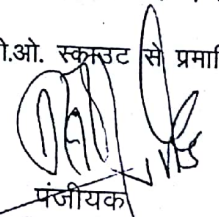 ी.ओ. स्काउट से प्रमाणि
पंजीयक